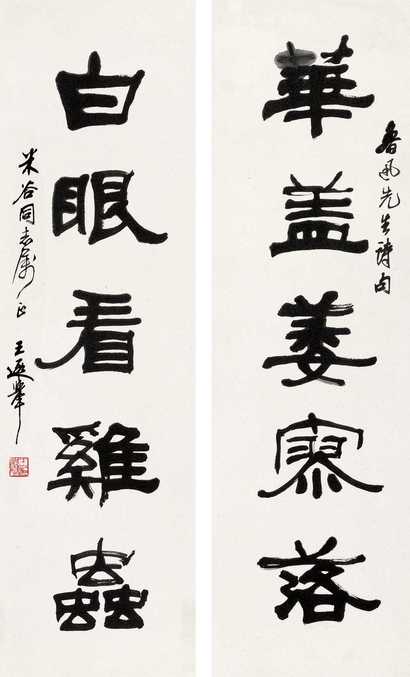 魯迅先生詩句
華盖萎寥落
白眼看雞蟲
米谷同志属正 王遐舉